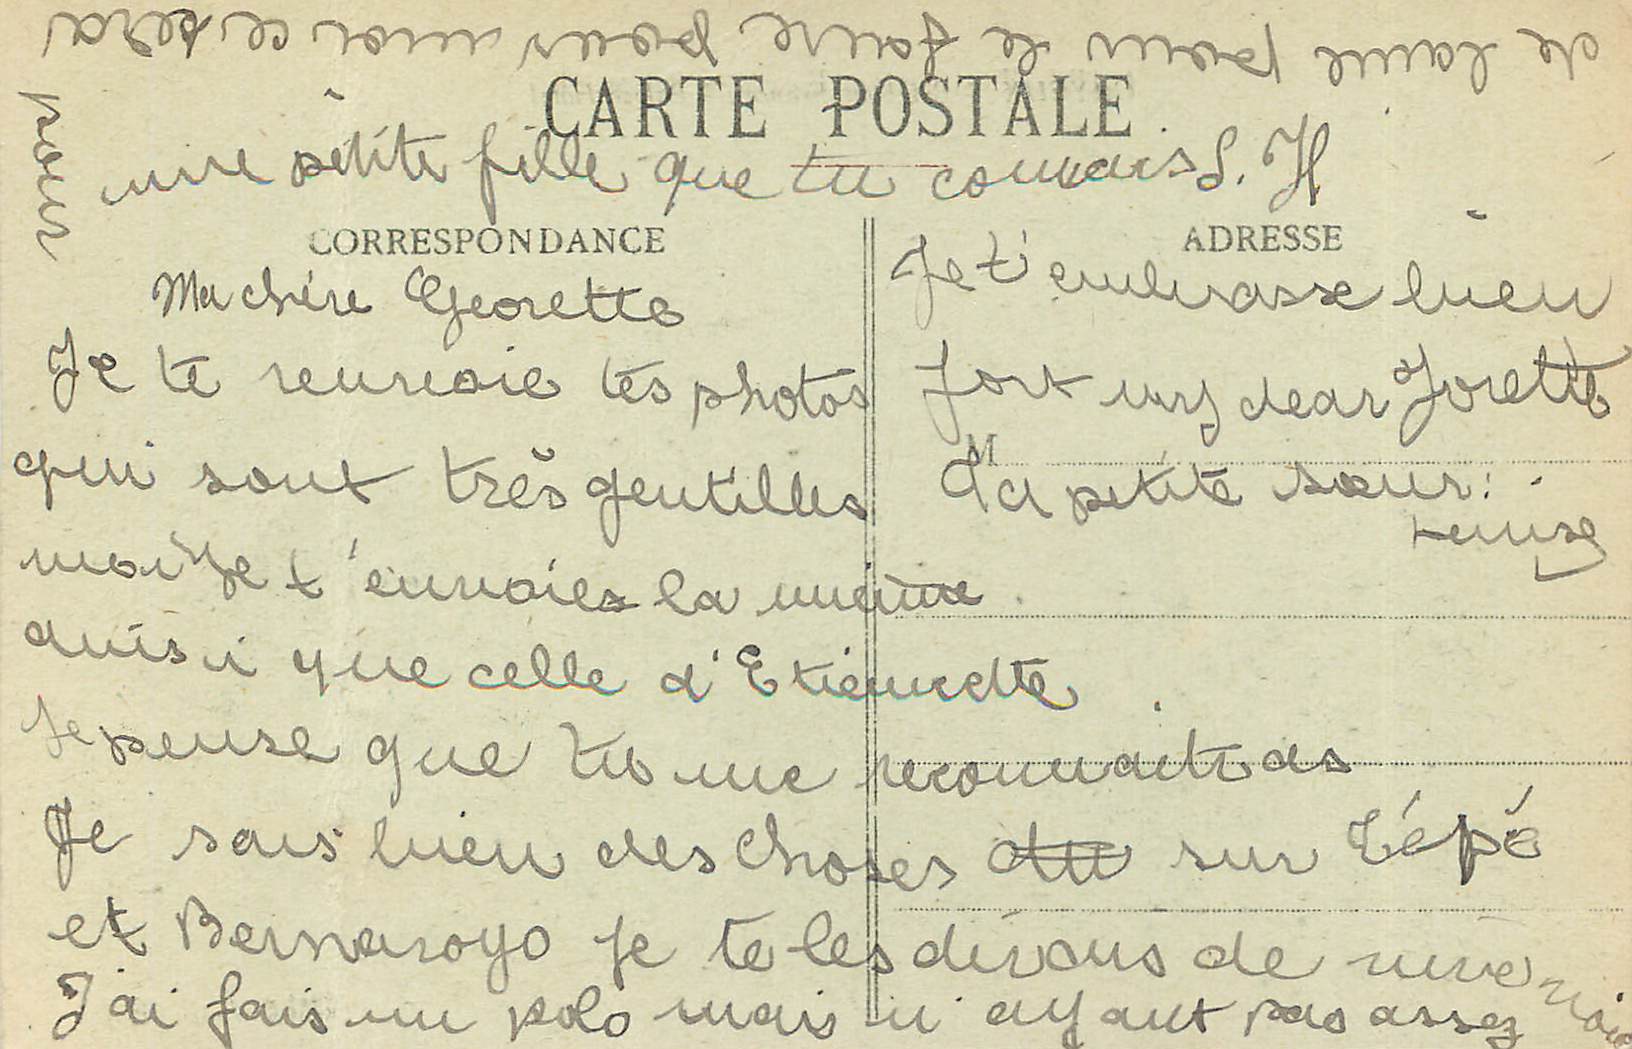 CARTE POSTALE
CORRESPONDANCE
ADRESSE
Ma chère Georette
Je te renvoie tes photos
qui sont très gentilles
moi Je t'envoies la mienne
ainsi que celle d'Etiennette
Je pense que tu me reconnaitras
Je sais bien des choses sur Pépé
et Bernaroyo je te les dirais de vive voix
J'ai fais un polo mais n'ayant pas assez
de laine pour le faire pour moi ce sera
pour
une petite fille que tu connais S. H
Je t'embrasse bien
fort my dear Jorette
Ta petite sœur: